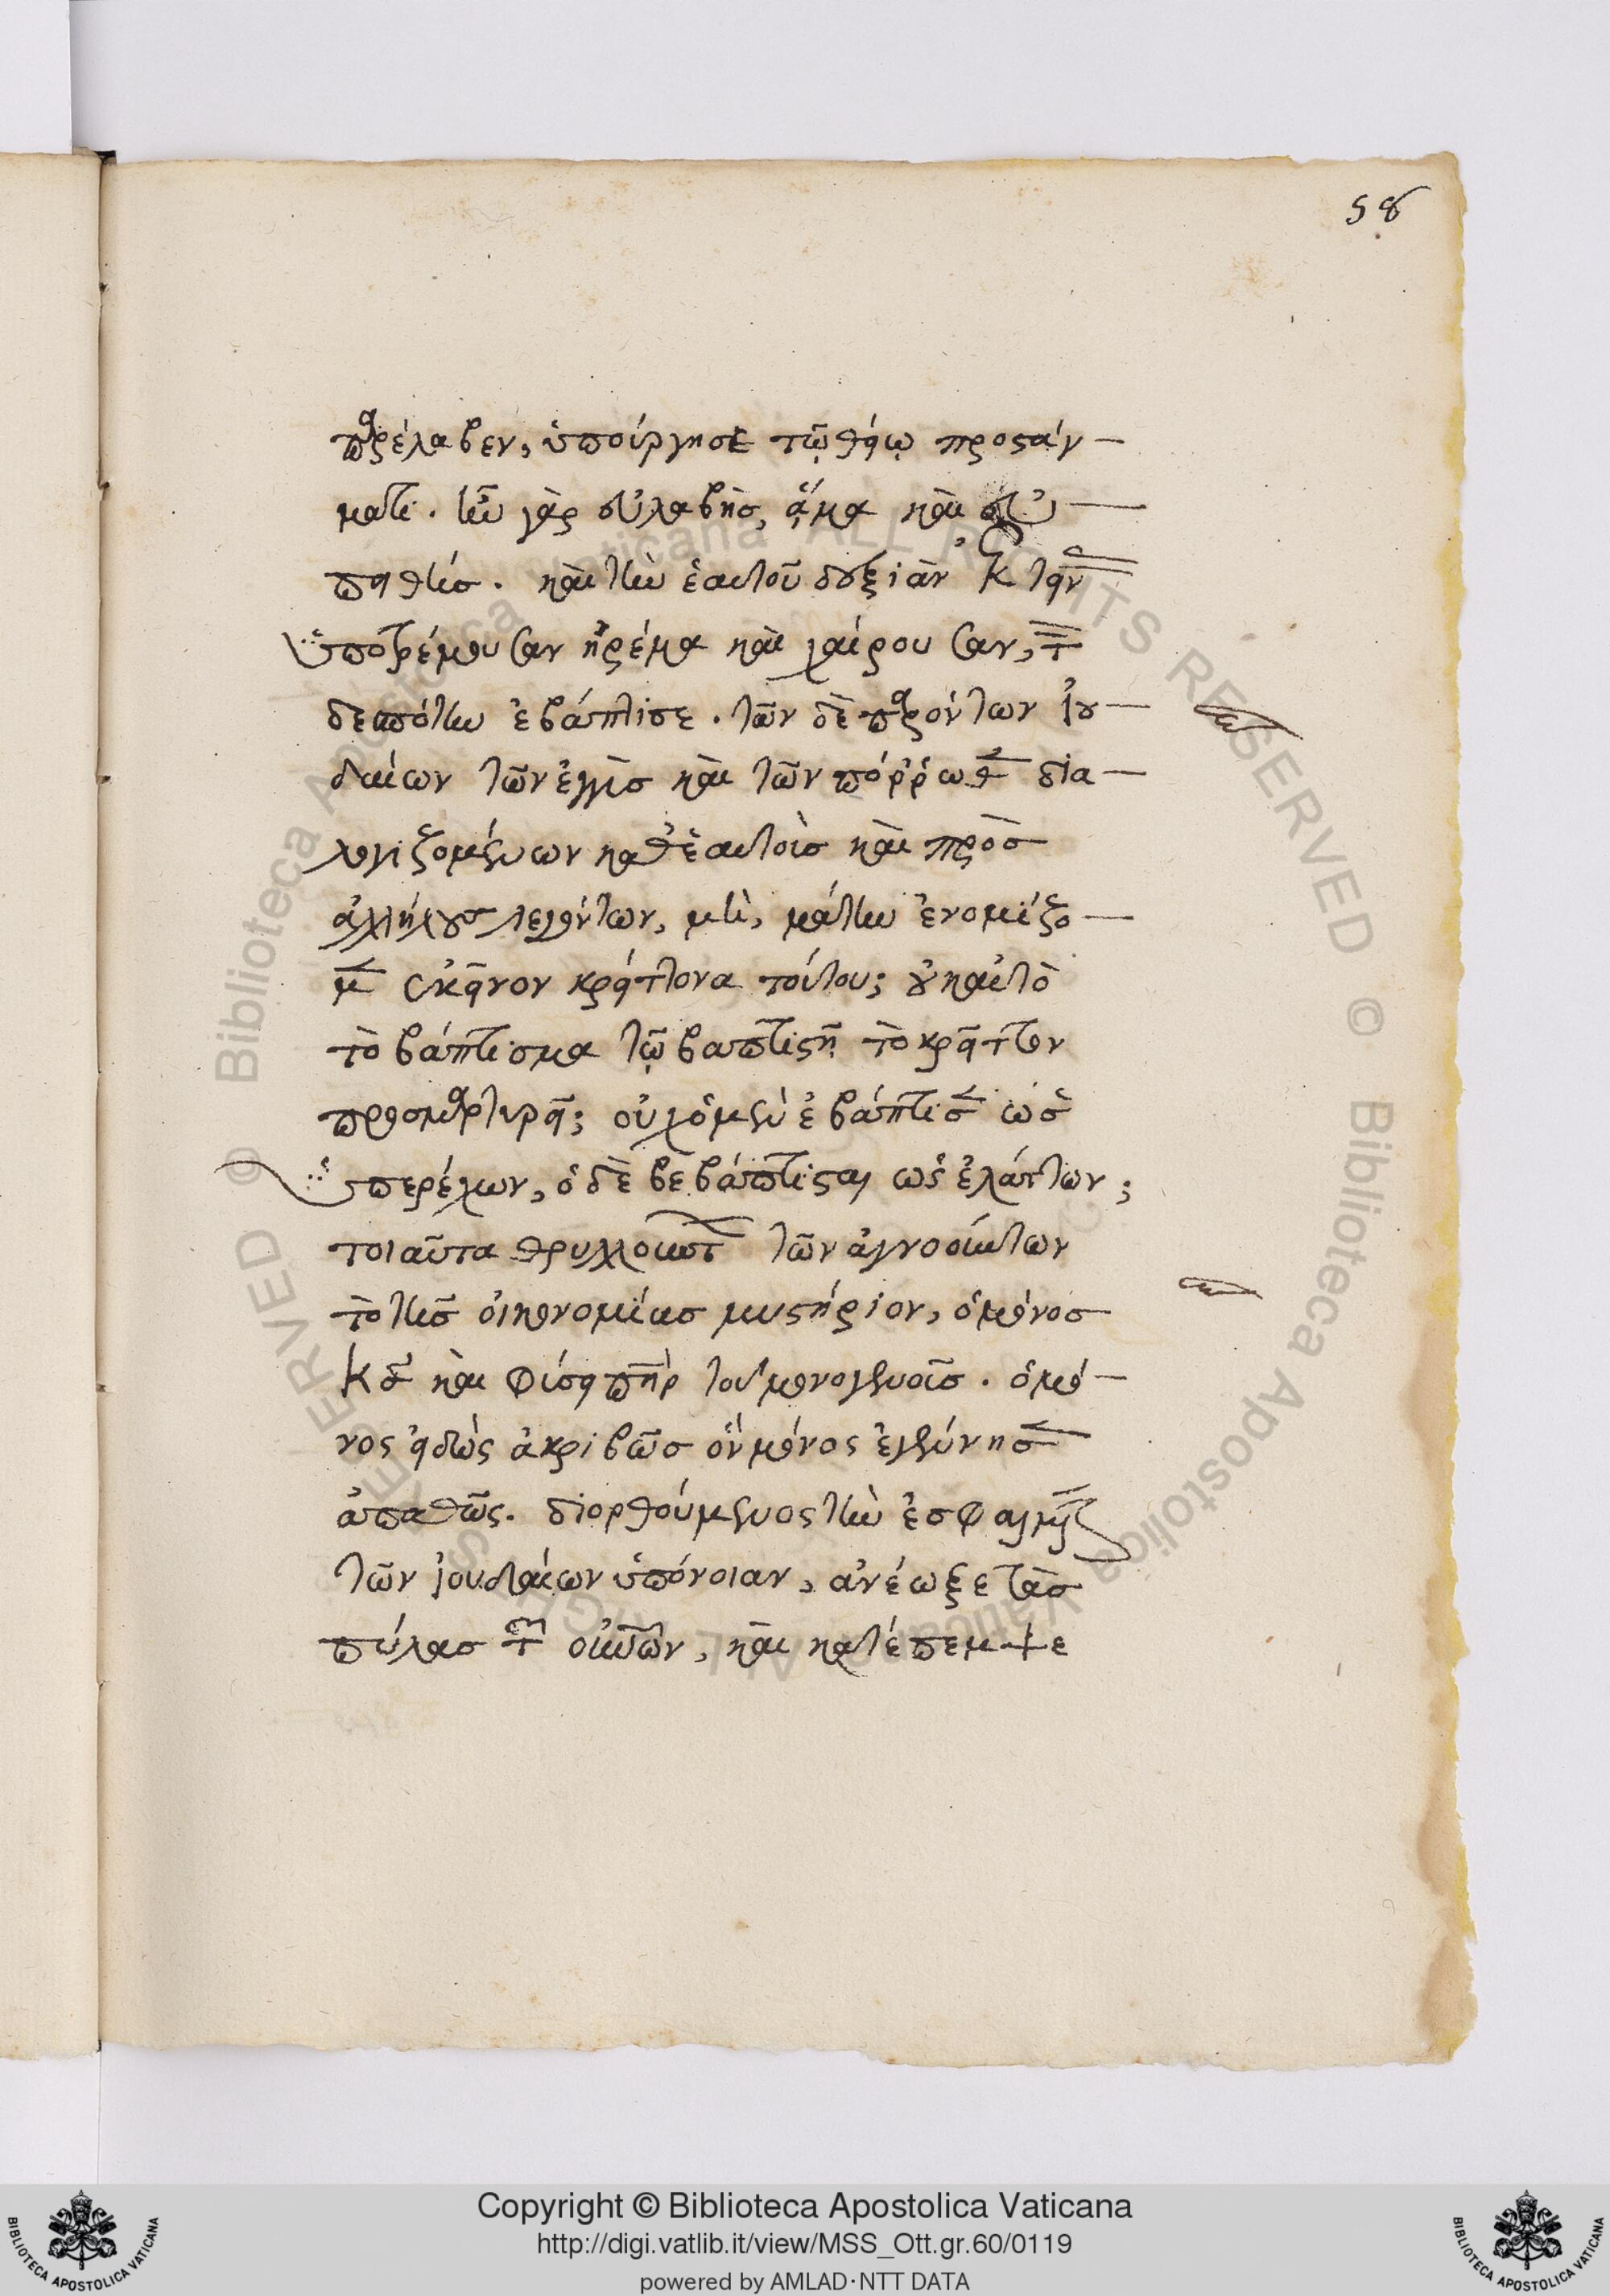 58
παρέλαβεν, ὑπούργησε τῷ θείῳ προστάγ-
ματι. ἦν γὰρ εὐλαβὴς, ἅμα καὶ εὐ-
πειθής. καὶ τὴν ἑαυτοῦ δεξιὰν ἐκτείν
ὑποτρέμουσαν ἠρέμα καὶ χαίρουσαν, τ
δεσπότην ἐβάπτισε. τῶν δὲ παρόντων ἰου-
δαίων τῶν ἐγγὺς καὶ τῶν πόρρωθεν δια-
λογιζομένων καθ' ἑαυτοὺς καὶ πρὸς
ἀλλήλους λεγόντων, μὴ, μάτην ἐνομίζο-
μεν ἐκεῖνον κρείττονα τούτου; οὐκ αὐτὸ
τὸ βάπτισμα τῷ βαπτιστῇ τὸ κρεῖττον
προσμαρτυρεῖ; οὐχ ὁ μὲν ἐβάπτισεν ὡς
ὑπερέχων, ὁ δὲ βεβάπτισται ὡς ἐλάττων;
τοιαῦτα θρυλλούντ τῶν ἀγνοούντων
τὸ τῆς οἰκονομίας μυστήριον, ὁ μόνος
κς καὶ φύσει πὴρ τοῦ μονογενοῦς. ὁ μό-
νος εἰδὼς ἀκριβῶς ὃν μόνος ἐγέννησεν
ἀπαθῶς. διορθούμενος τὴν ἐσφαλμένην
τῶν ἰουδαίων ὑπόνοιαν, ἀνέωξε τὰς
πύλας τ οὐνῶν, καὶ κατέπεμψε
Copyright © Biblioteca Apostolica Vaticana
http://digi.vatlib.it/view/MSS_Ott.gr.60/0119
powered by AMLAD·NTT DATA